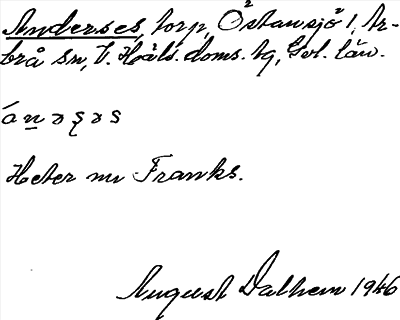 Anderses, torp, Östansjö 1, Ar-
brå sn, V. Häls. doms. tg, Gvl. län.
ánəşəs
Heter nu Franks.
August Dalhem 1946